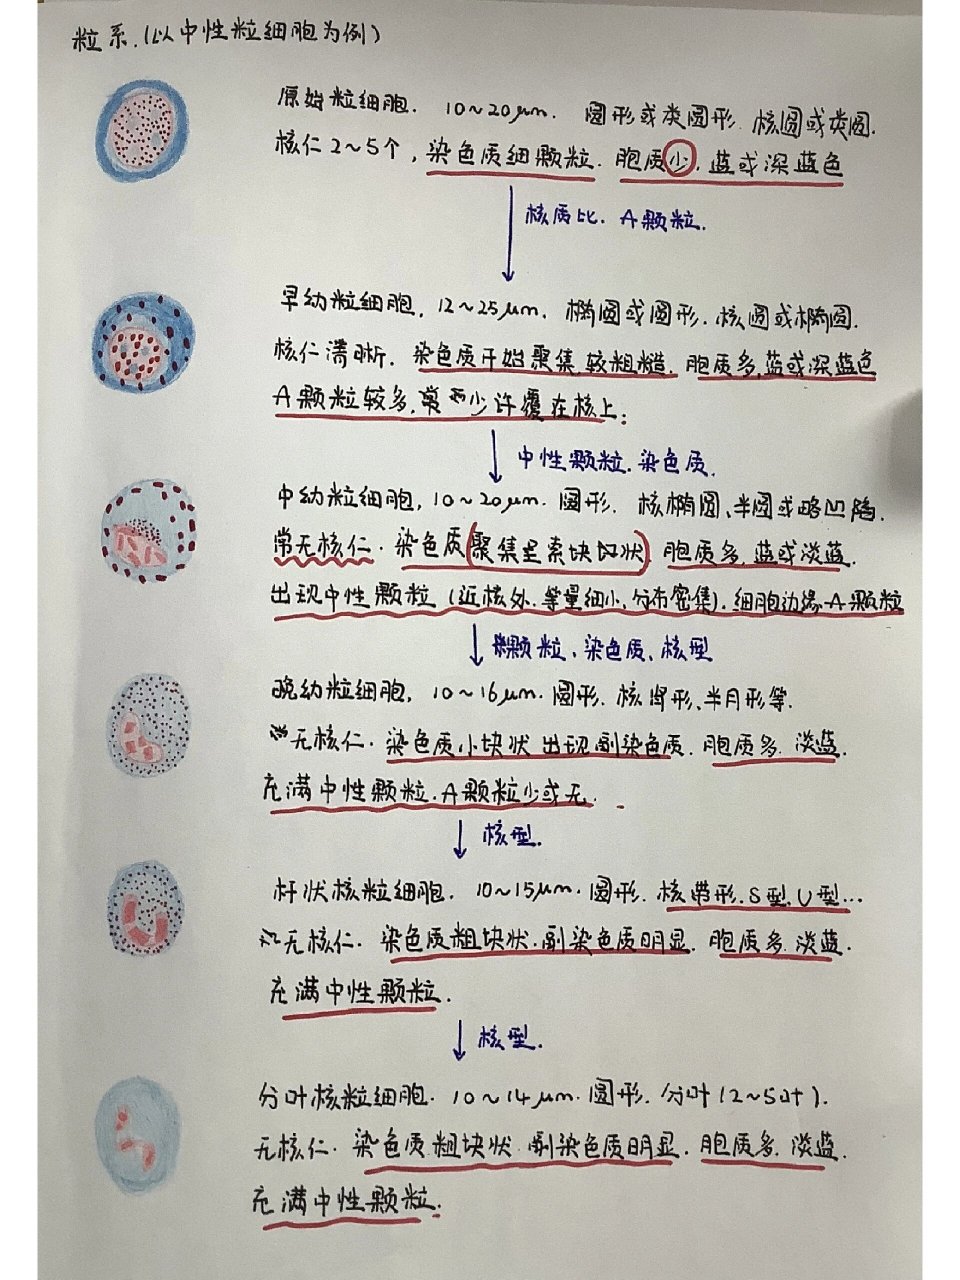 粒系.(以中性粒细胞为例)
原始粒细胞. 10~20μm. 圆形或类圆形. 核圆或类圆.
核仁2~5个, 染色质细颗粒. 胞质少. 蓝或深蓝色
核质比. A颗粒.
早幼粒细胞, 12~25μm. 椭圆或圆形. 核圆或椭圆.
核仁清晰. 染色质开始聚集,较粗糙. 胞质多,蓝或深蓝色
A颗粒较多, 少许覆在核上;
中性颗粒. 染色质.
中幼粒细胞, 10~20μm. 圆形. 核椭圆、半圆或略凹陷.
常无核仁. 染色质(聚集呈索块状) 胞质多, 蓝或淡蓝.
出现中性颗粒(近核外、等量细小、分布密集). 细胞边缘-A颗粒
颗粒、染色质、核型
晚幼粒细胞, 10~16μm. 圆形. 核肾形、半月形等.
无核仁. 染色质小块状 出现副染色质. 胞质多. 淡蓝.
充满中性颗粒. A颗粒少或无.
核型.
杆状核粒细胞. 10~15μm. 圆形. 核带形. S型. U型...
无核仁. 染色质粗块状. 副染色质明显. 胞质多. 淡蓝.
充满中性颗粒.
核型.
分叶核粒细胞. 10~14μm. 圆形. 分叶(2~5叶).
无核仁. 染色质粗块状. 副染色质明显. 胞质多. 淡蓝.
充满中性颗粒.